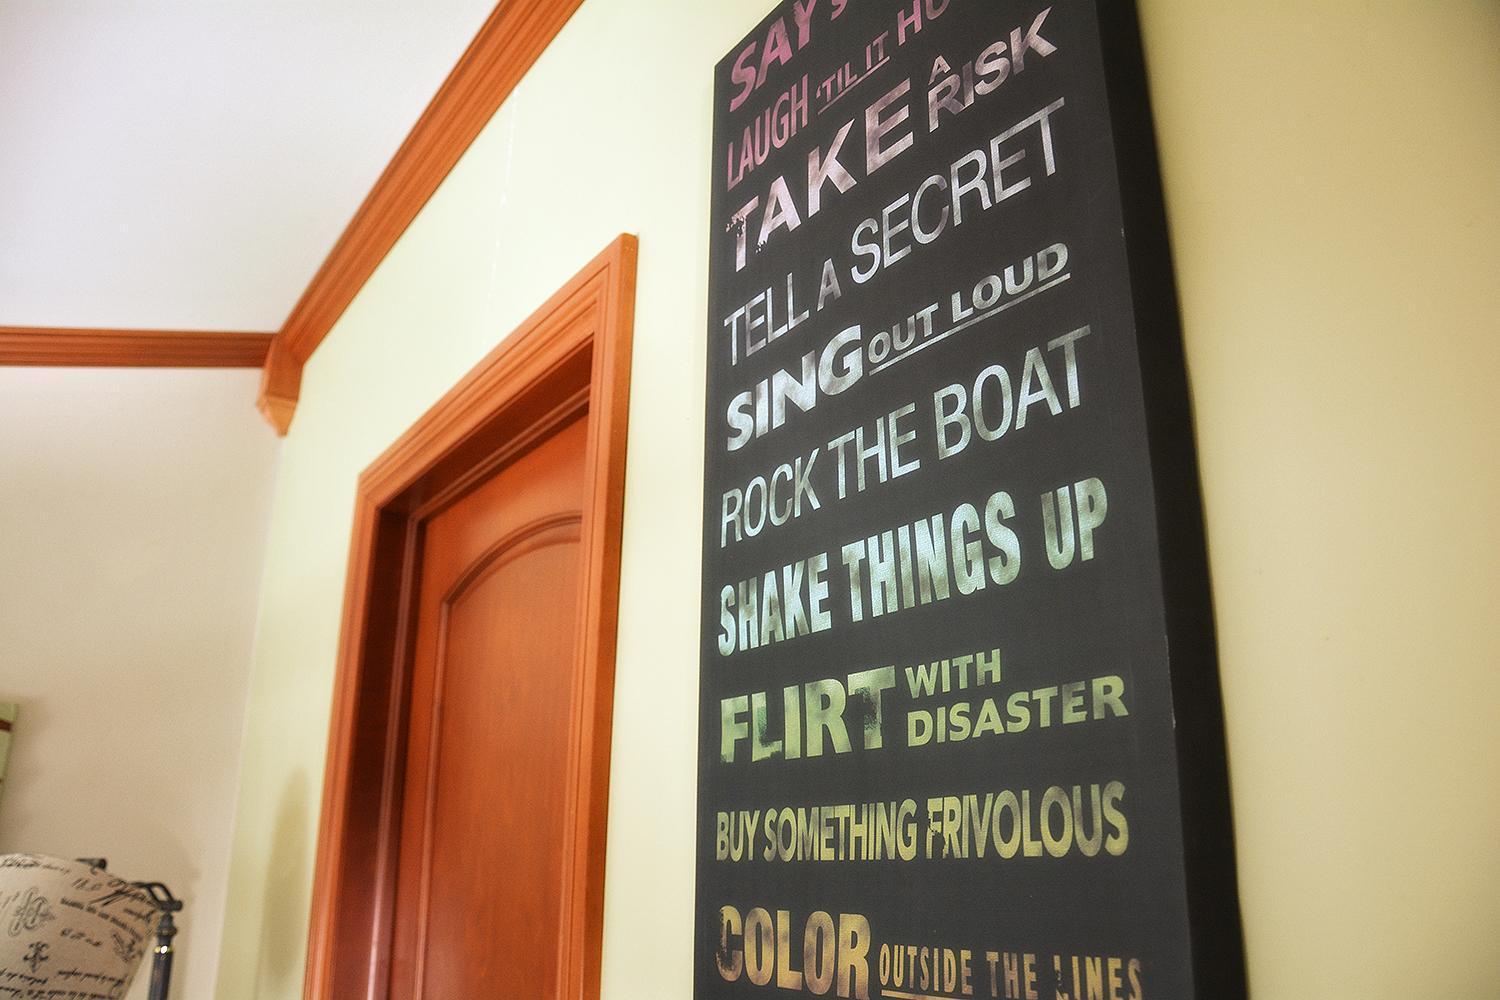 SAY
LAUGH 'TIL IT
TAKE A RISK
TELL A SECRET
SING OUT LOUD
ROCK THE BOAT
SHAKE THINGS UP
FLIRT WITH DISASTER
BUY SOMETHING FRIVOLOUS
COLOR OUTSIDE THE LINES